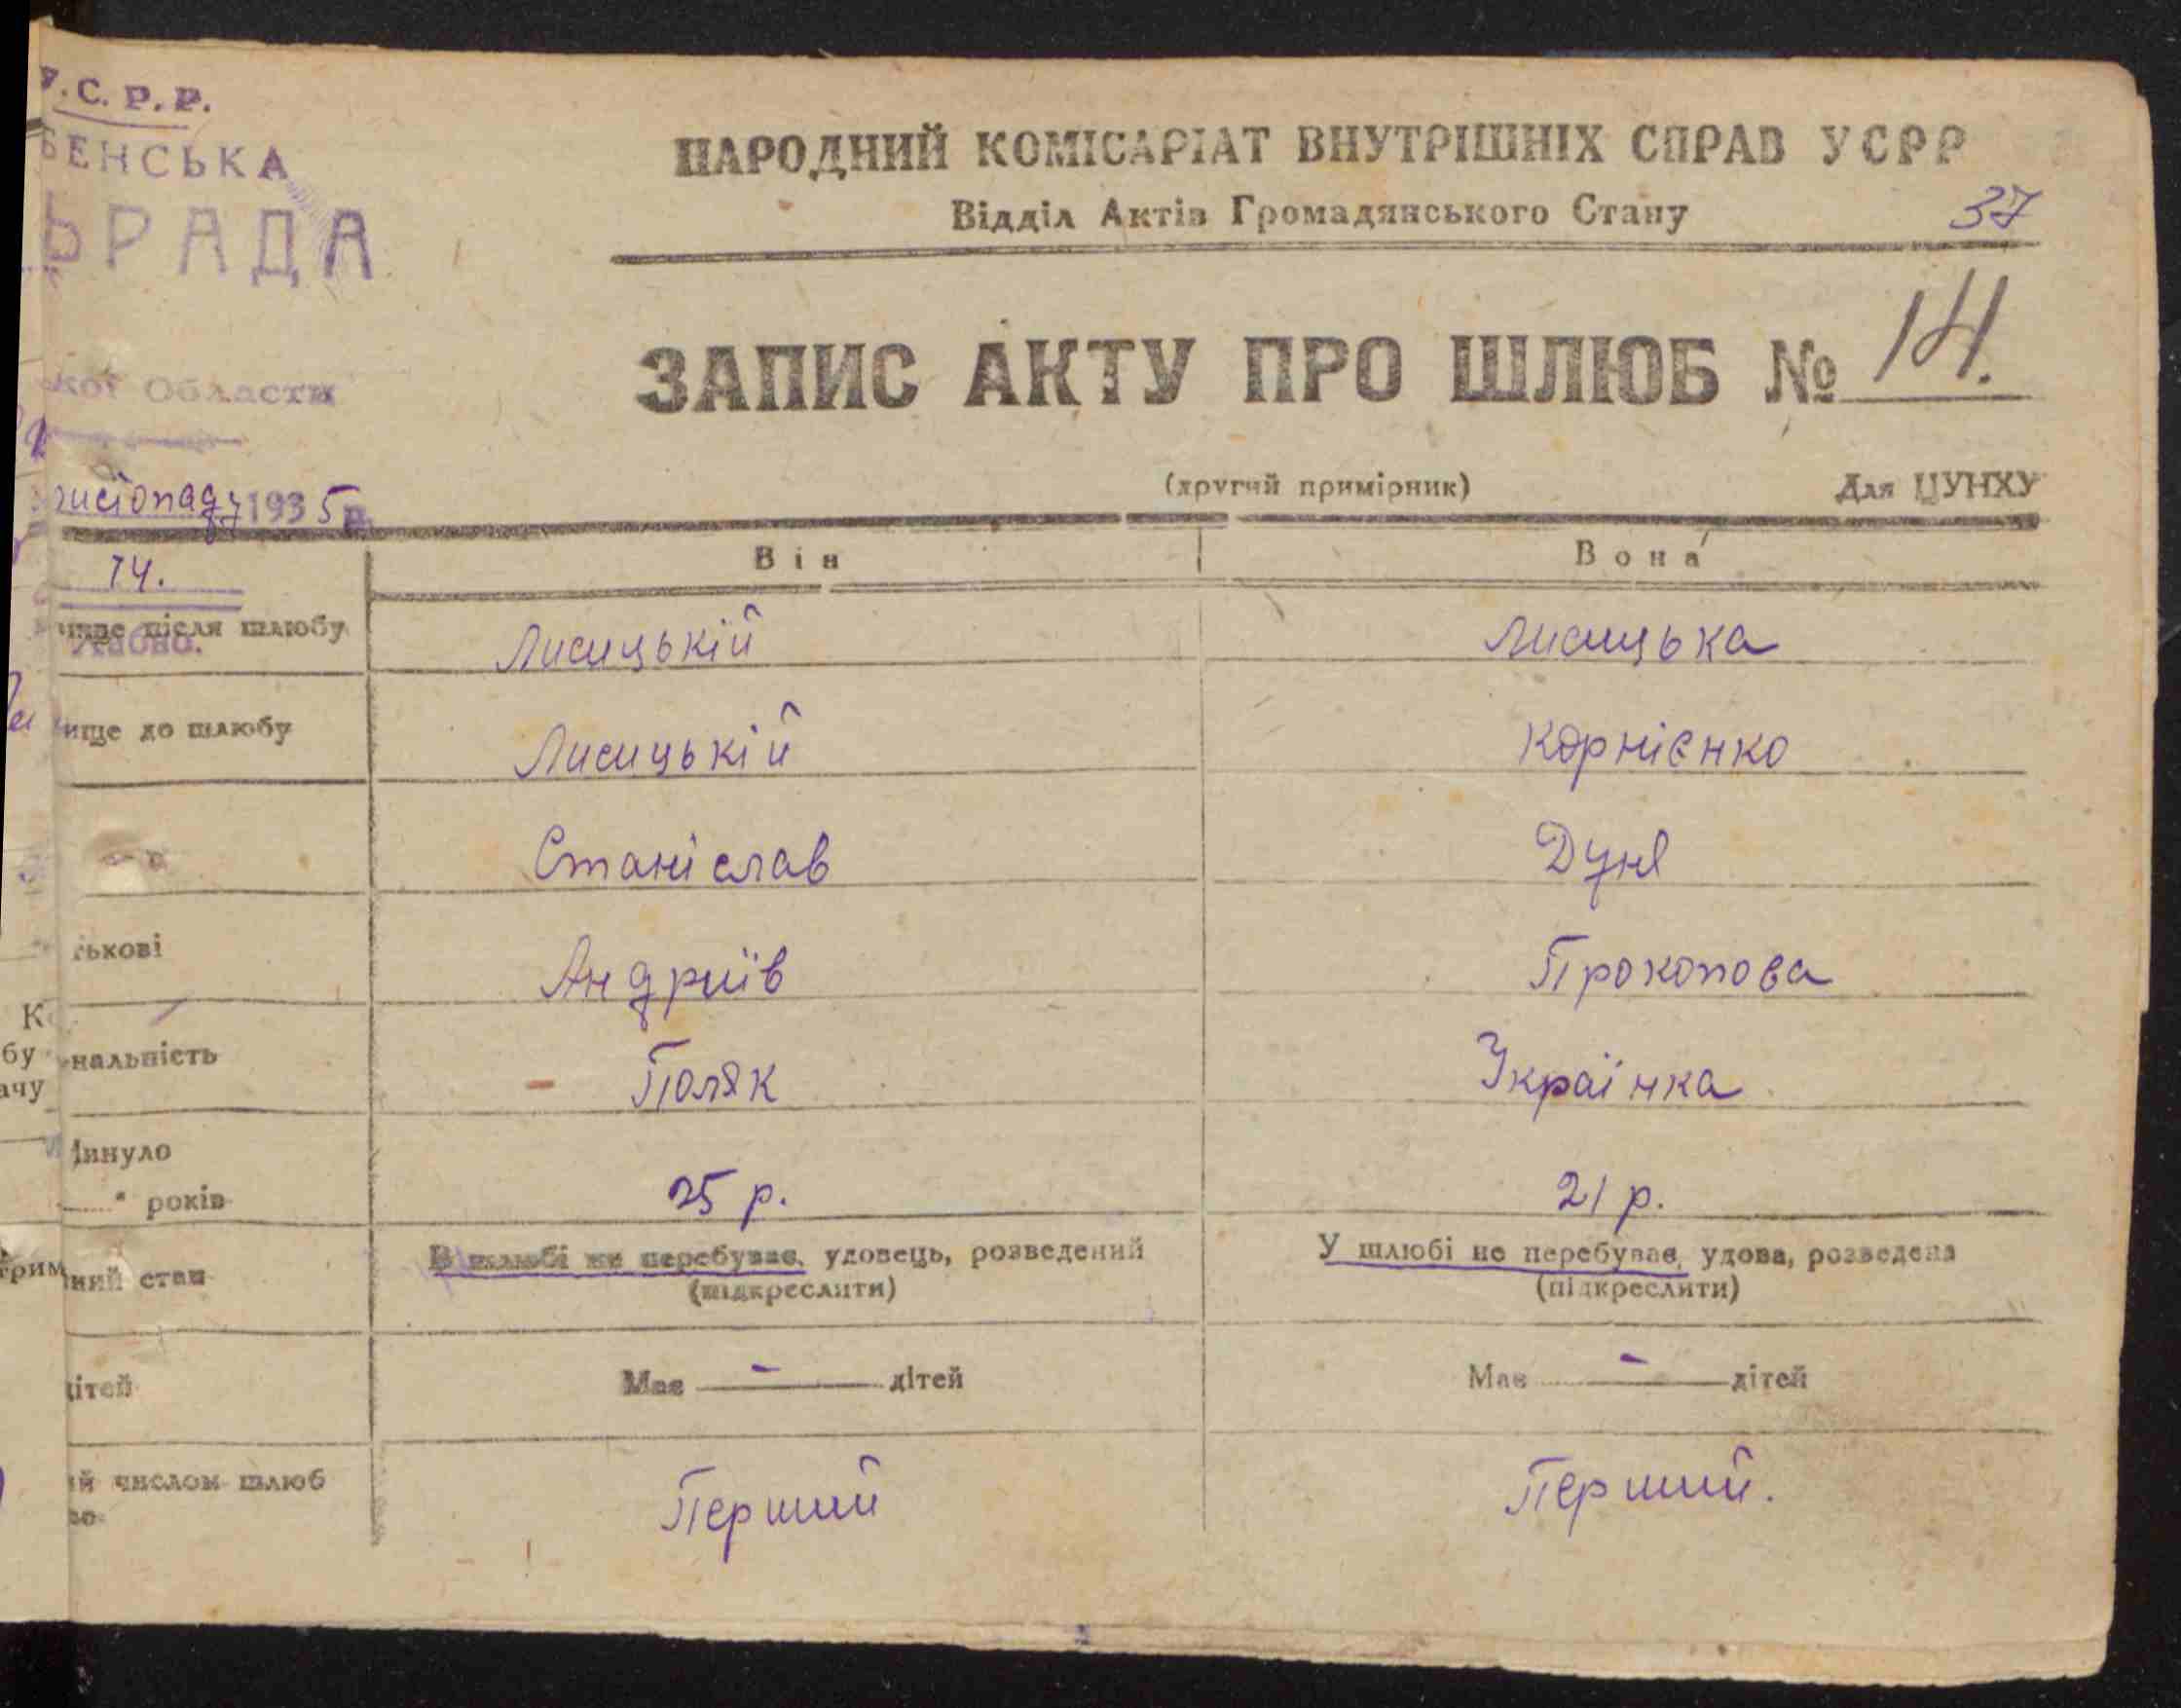 С. Р. Р.
БЕНСЬКА
ЬРАДА
кої Области
листопаду 1935 р.
14.
НАРОДНИЙ КОМІСАРІАТ ВНУТРІШНІХ СПРАВ УСРР
Відділ Актів Громадянського Стану
37
ЗАПИС АКТУ ПРО ШЛЮБ № 14.
(другий примірник) Для ЦУНХУ
Він Вона
після шлюбу Лисицькій Лисицька
ище до шлюбу Лисицькій Корнієнко
Станіслав Дуня
ькові Андриїв Прокопова
нальність Поляк Українка
Минуло
років 25 р. 21 р.
ний стан В шлюбі не перебуває, удовець, розведений У шлюбі не перебуває, удова, розведена
(підкреслити) (підкреслити)
дітей Має — дітей Має — дітей
ий числом шлюб Перший Перший.